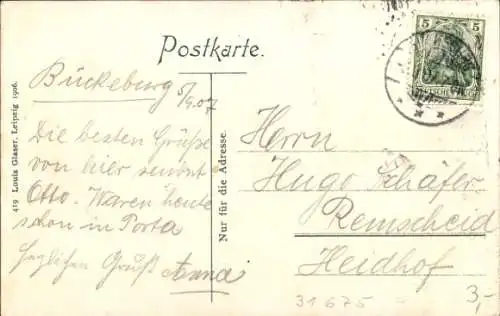 Postkarte.
Bückeburg 5/9.07
Die besten Grüße
von hier sendet
Otto. Waren heute
schon in Porta
Herzlichen Gruß Anna
419 Louis Glaser, Leipzig 1906.
Nur für die Adresse.
5
Herrn
Hugo Schäfer
Remscheid
Heidhof
31675
3,-